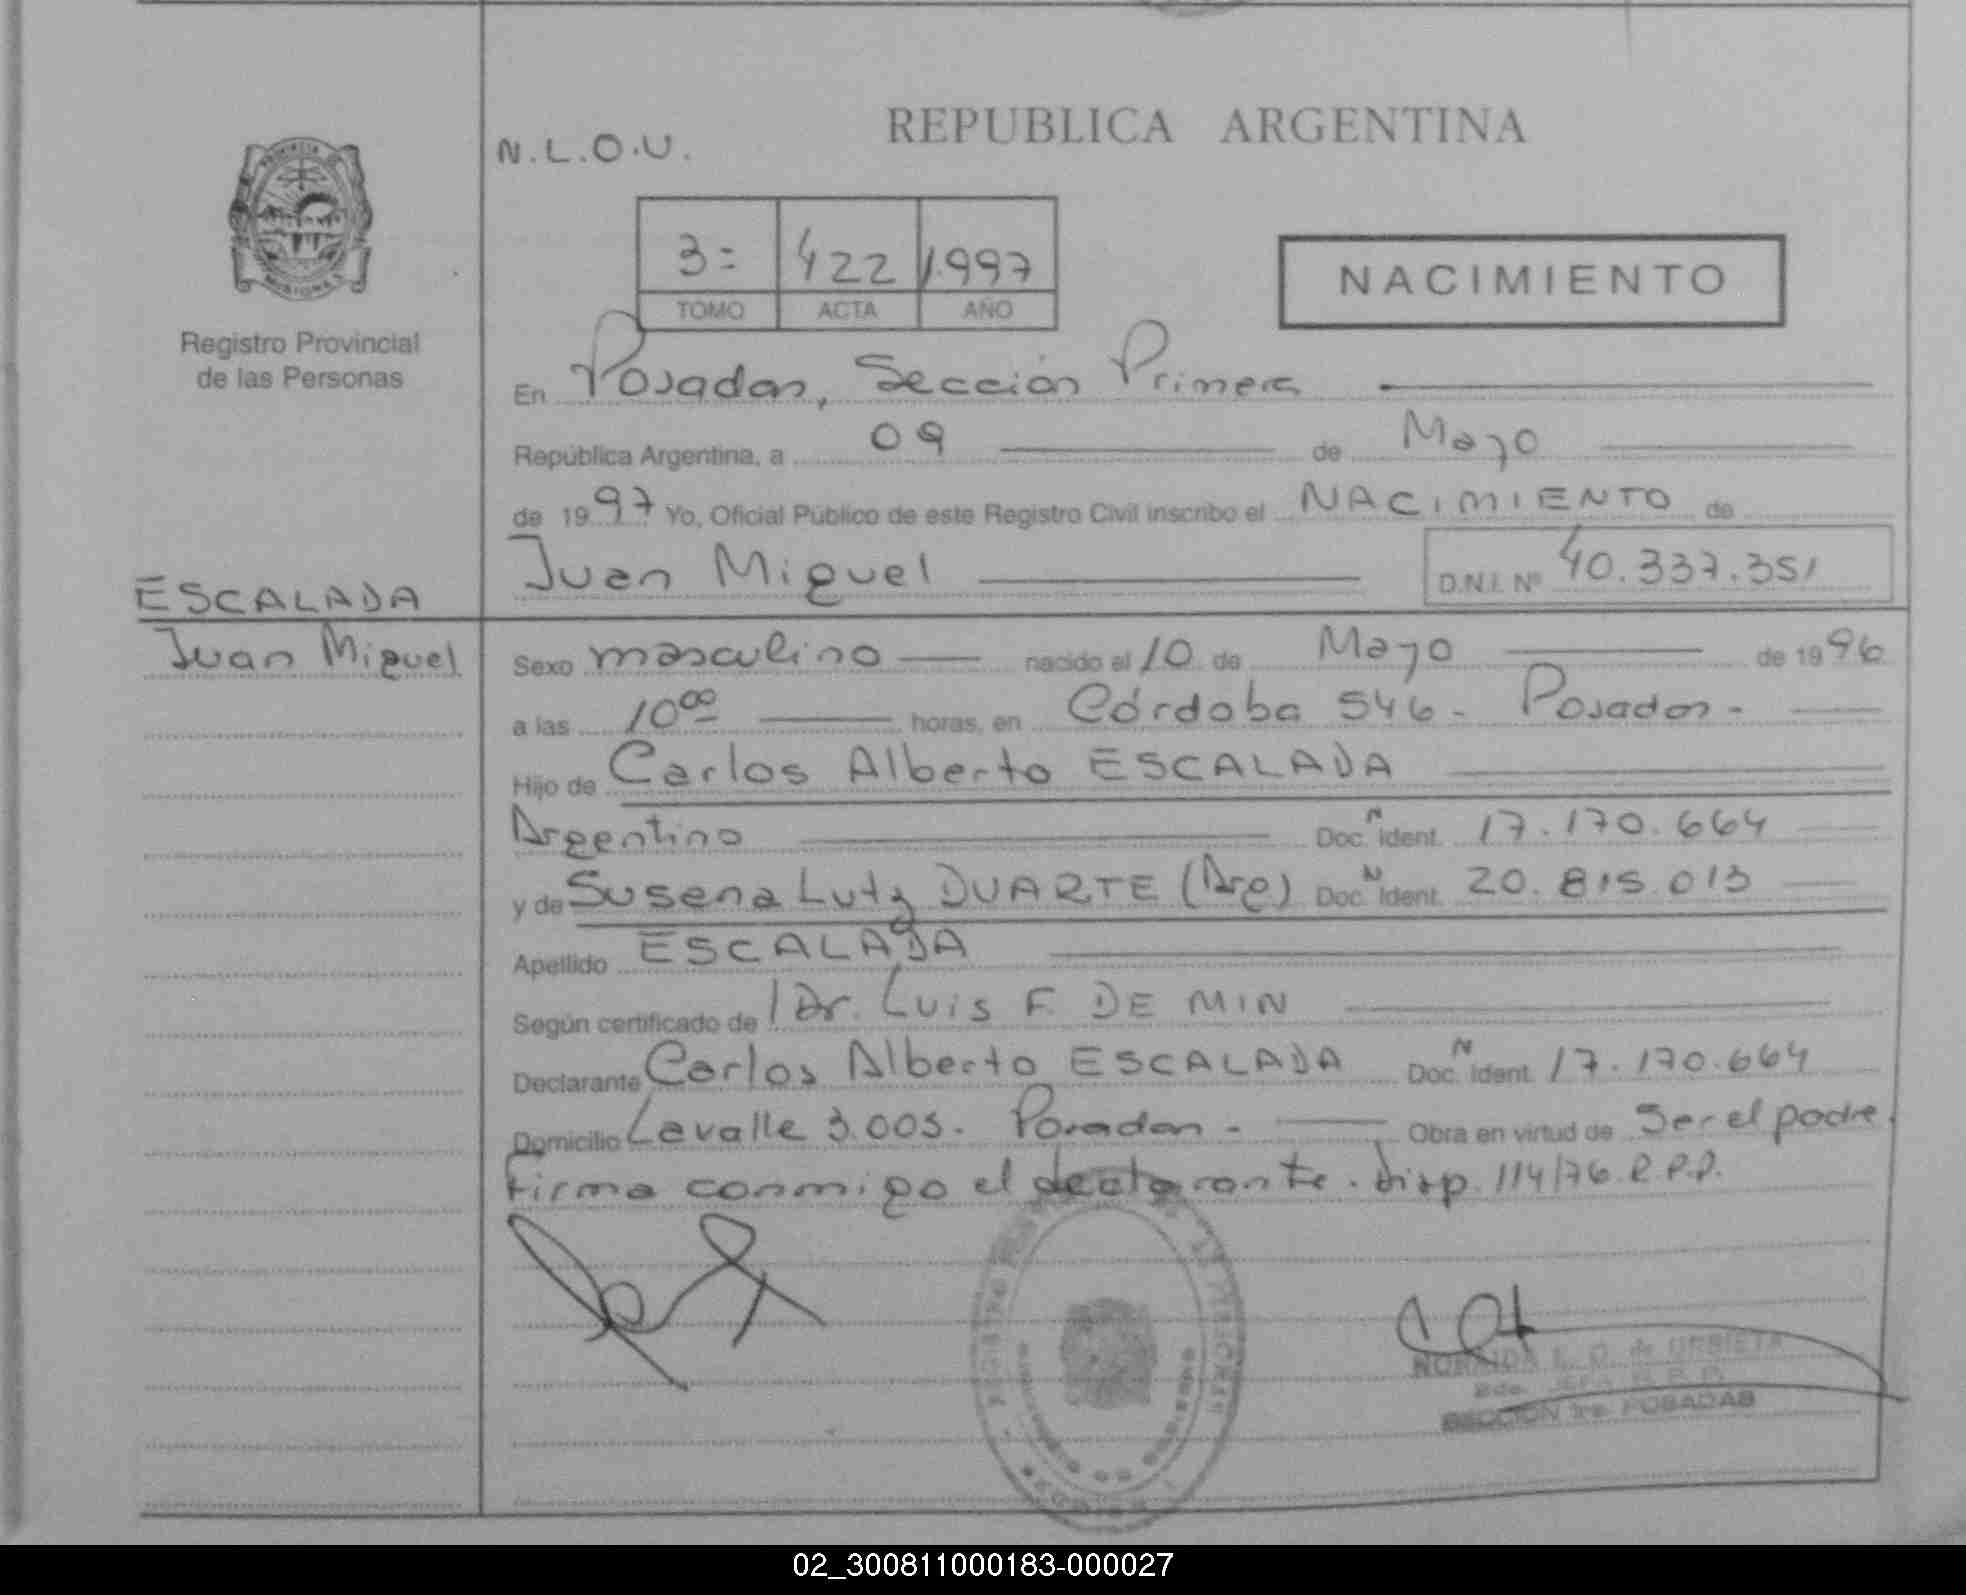 REPUBLICA ARGENTINA
N.L.O.U.
PROVINCIA DE
MISIONES
3= 422 1.997
TOMO ACTA AÑO
NACIMIENTO
Registro Provincial
de las Personas
En Posadas, Sección Primera
República Argentina, a 09 de Mayo
de 1997 Yo, Oficial Público de este Registro Civil inscribo el NACIMIENTO de
Juan Miguel D.N.I. Nº 40.337.351
ESCALADA
Juan Miguel
Sexo masculino nacido el 10 de Mayo de 1996
a las 10⁰⁰ horas, en Córdoba 546 - Posadas -
Hijo de Carlos Alberto ESCALADA
Argentino Doc. N Ident. 17.170.664
y de Susana Lutz DUARTE (Arg) Doc. N Ident. 20.815.013
Apellido ESCALADA
Según certificado de / Dr. Luis F. DE MIN
Declarante Carlos Alberto ESCALADA Doc. N Ident. 17.170.664
Domicilio Lavalle 3.005. Posadas - Obra en virtud de Ser el padre.
Firma conmigo el declarante. Disp. 114/76 R.P.P.
L. O. de URBIETA
SECCION 1ra. POSADAS
02_300811000183-000027